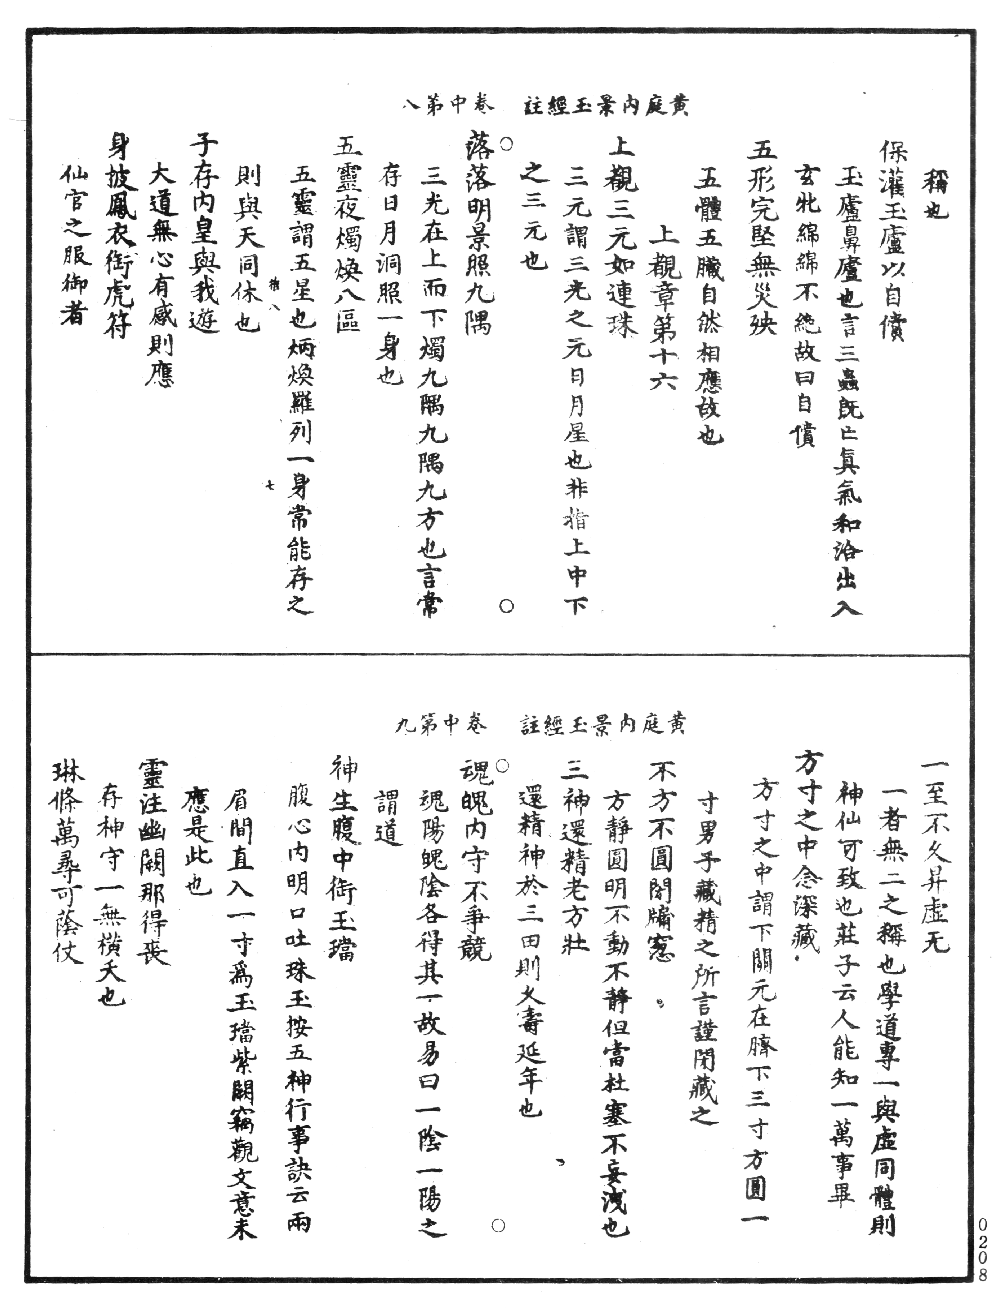 黃庭內景玉經註　卷中第八
稱也
保灌玉廬以自償
玉廬鼻廬也言三蟲旣亡眞氣和洽出入
玄牝綿綿不絶故曰自償
五形完堅無災殃
五體五臟自然相應故也
上覩章第十六
上覩三元如連珠
三元謂三光之元日月星也非指上中下
之三元也
落落明景照九隅
三光在上而下燭九隅九隅九方也言常
存日月洞照一身也
五靈夜燭煥八區
五靈謂五星也炳煥羅列一身常能存之
則與天同休也
子存內皇與我遊
大道無心有感則應
身披鳳衣銜虎符
仙官之服御者
黃庭內景玉經註　卷中第九
一至不久昇虛无
一者無二之稱也學道專一與虛同體則
神仙可致也莊子云人能知一萬事畢
方寸之中念深藏
方寸之中謂下關元在臍下三寸方圓一
寸男子藏精之所言謹閉藏之
不方不圓閉牖窻
方靜圓明不動不靜但當杜塞不妄洩也
三神還精老方壯
還精神於三田則久壽延年也
魂魄內守不爭競
魂陽魄陰各得其一故易曰一陰一陽之
謂道
神生腹中銜玉璫
腹心內明口吐珠玉按五神行事訣云兩
眉間直入一寸爲玉璫紫闕竊觀文意未
應是此也
靈注幽闕那得喪
存神守一無橫夭也
琳條萬尋可蔭仗
0208